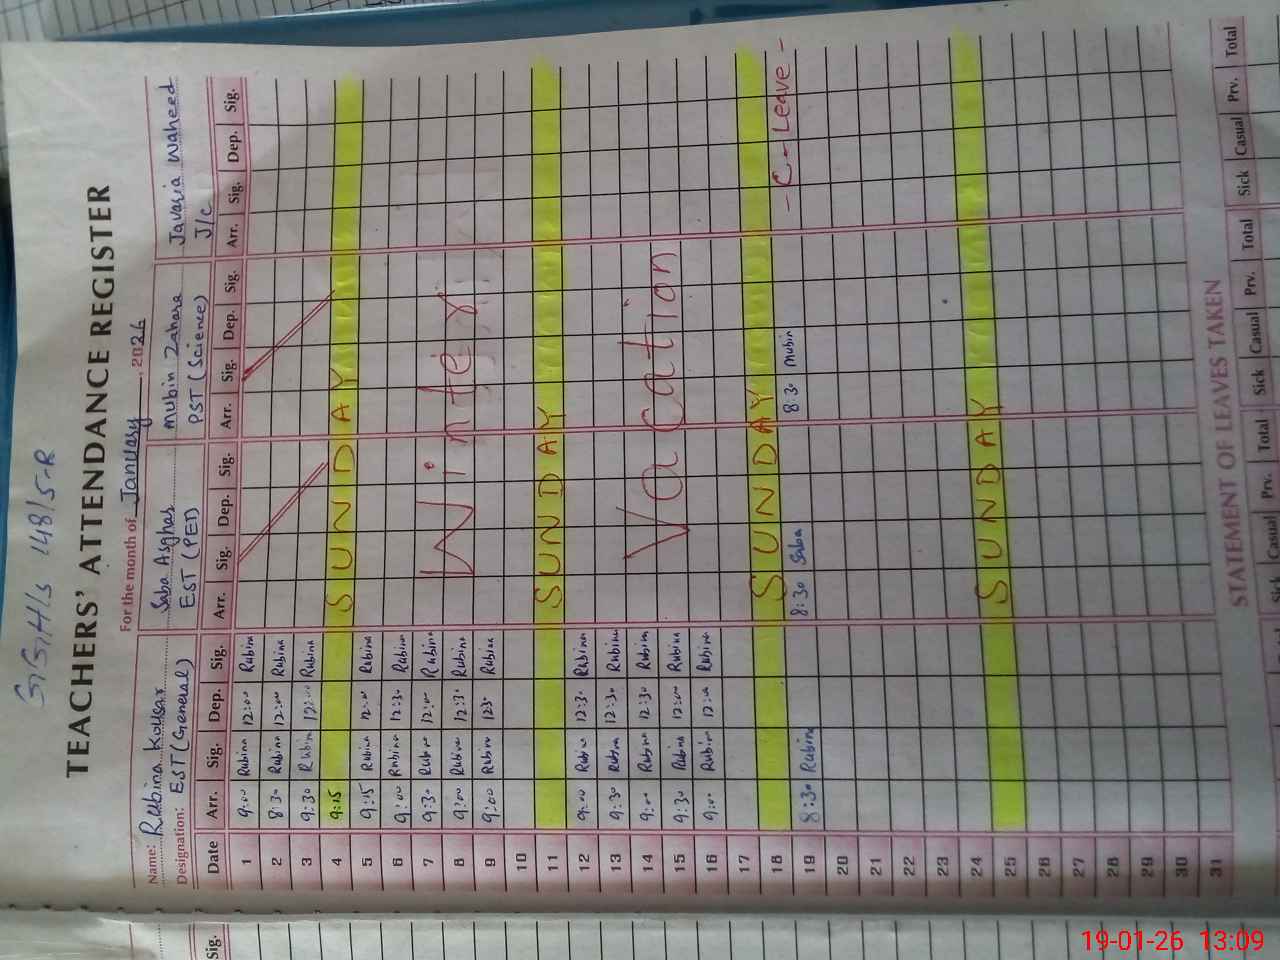 GGHS 148/5-R
TEACHERS' ATTENDANCE REGISTER
For the month of January, 2026
Name: Rubina Kousar Saba Asghar Mubin Zahara Javaria Waheed
Designation: EST (General) EST (PET) PST (Science) J/C
Date Arr. Sig. Dep. Sig. Arr. Sig. Dep. Sig. Arr. Sig. Dep. Sig. Arr. Sig. Dep. Sig.
1 9:00 Rubina 12:00 Rubina
2 8:30 Rubina 12:00 Rubina
3 9:30 Rubina 12:00 Rubina
4 9:15 SUNDAY
5 9:15 Rubina 12:00 Rubina
6 9:00 Rubina 12:30 Rubina
7 9:30 Rubina 12:00 Rubina Winter
8 9:00 Rubina 12:30 Rubina
9 9:00 Rubina 1230 Rubina
10
11 SUNDAY
12 9:00 Rubina 12:30 Rubina
13 9:30 Rubina 12:30 Rubina
14 9:00 Rubina 12:30 Rubina Vacation
15 9:30 Rubina 12:00 Rubina
16 9:00 Rubina 12:00 Rubina
17
18 SUNDAY
19 8:30 Rubina 8:30 Saba 8:30 Mubin - C - Leave -
20
21
22
23
24
25 SUNDAY
26
27
28
29
30
31
STATEMENT OF LEAVES TAKEN
Sick Casual Prv. Total Sick Casual Prv. Total Sick Casual Prv. Total
Sig.
19-01-26 13:09